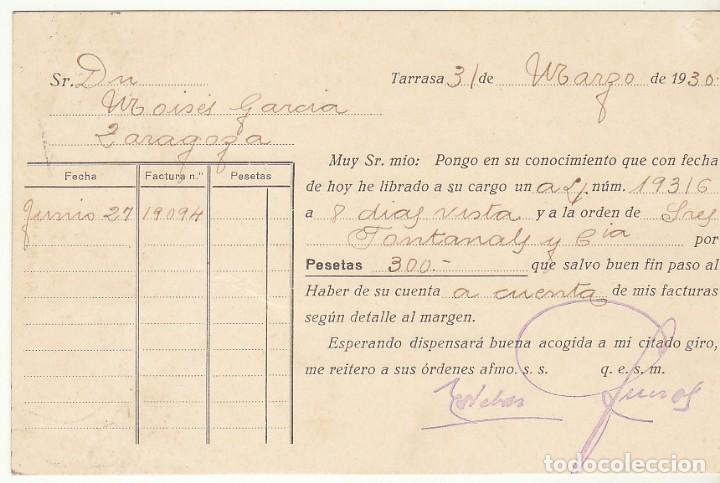 Sr. Dn
Moisés Garcia
Zaragoza
Tarrasa 31 de Marzo de 1930.
Fecha Factura n.º Pesetas
Junio 27 19094
Muy Sr. mio: Pongo en su conocimiento que con fecha
de hoy he librado a su cargo un a L/ núm. 19316
a 8 dias vista y a la orden de Sres
Fontanals y Cia por
Pesetas 300.- que salvo buen fin paso al
Haber de su cuenta a cuenta de mis facturas
según detalle al margen.
Esperando dispensará buena acogida a mi citado giro,
me reitero a sus órdenes afmo. s. s. q. e. s. m.
Esteban
todocoleccion.net